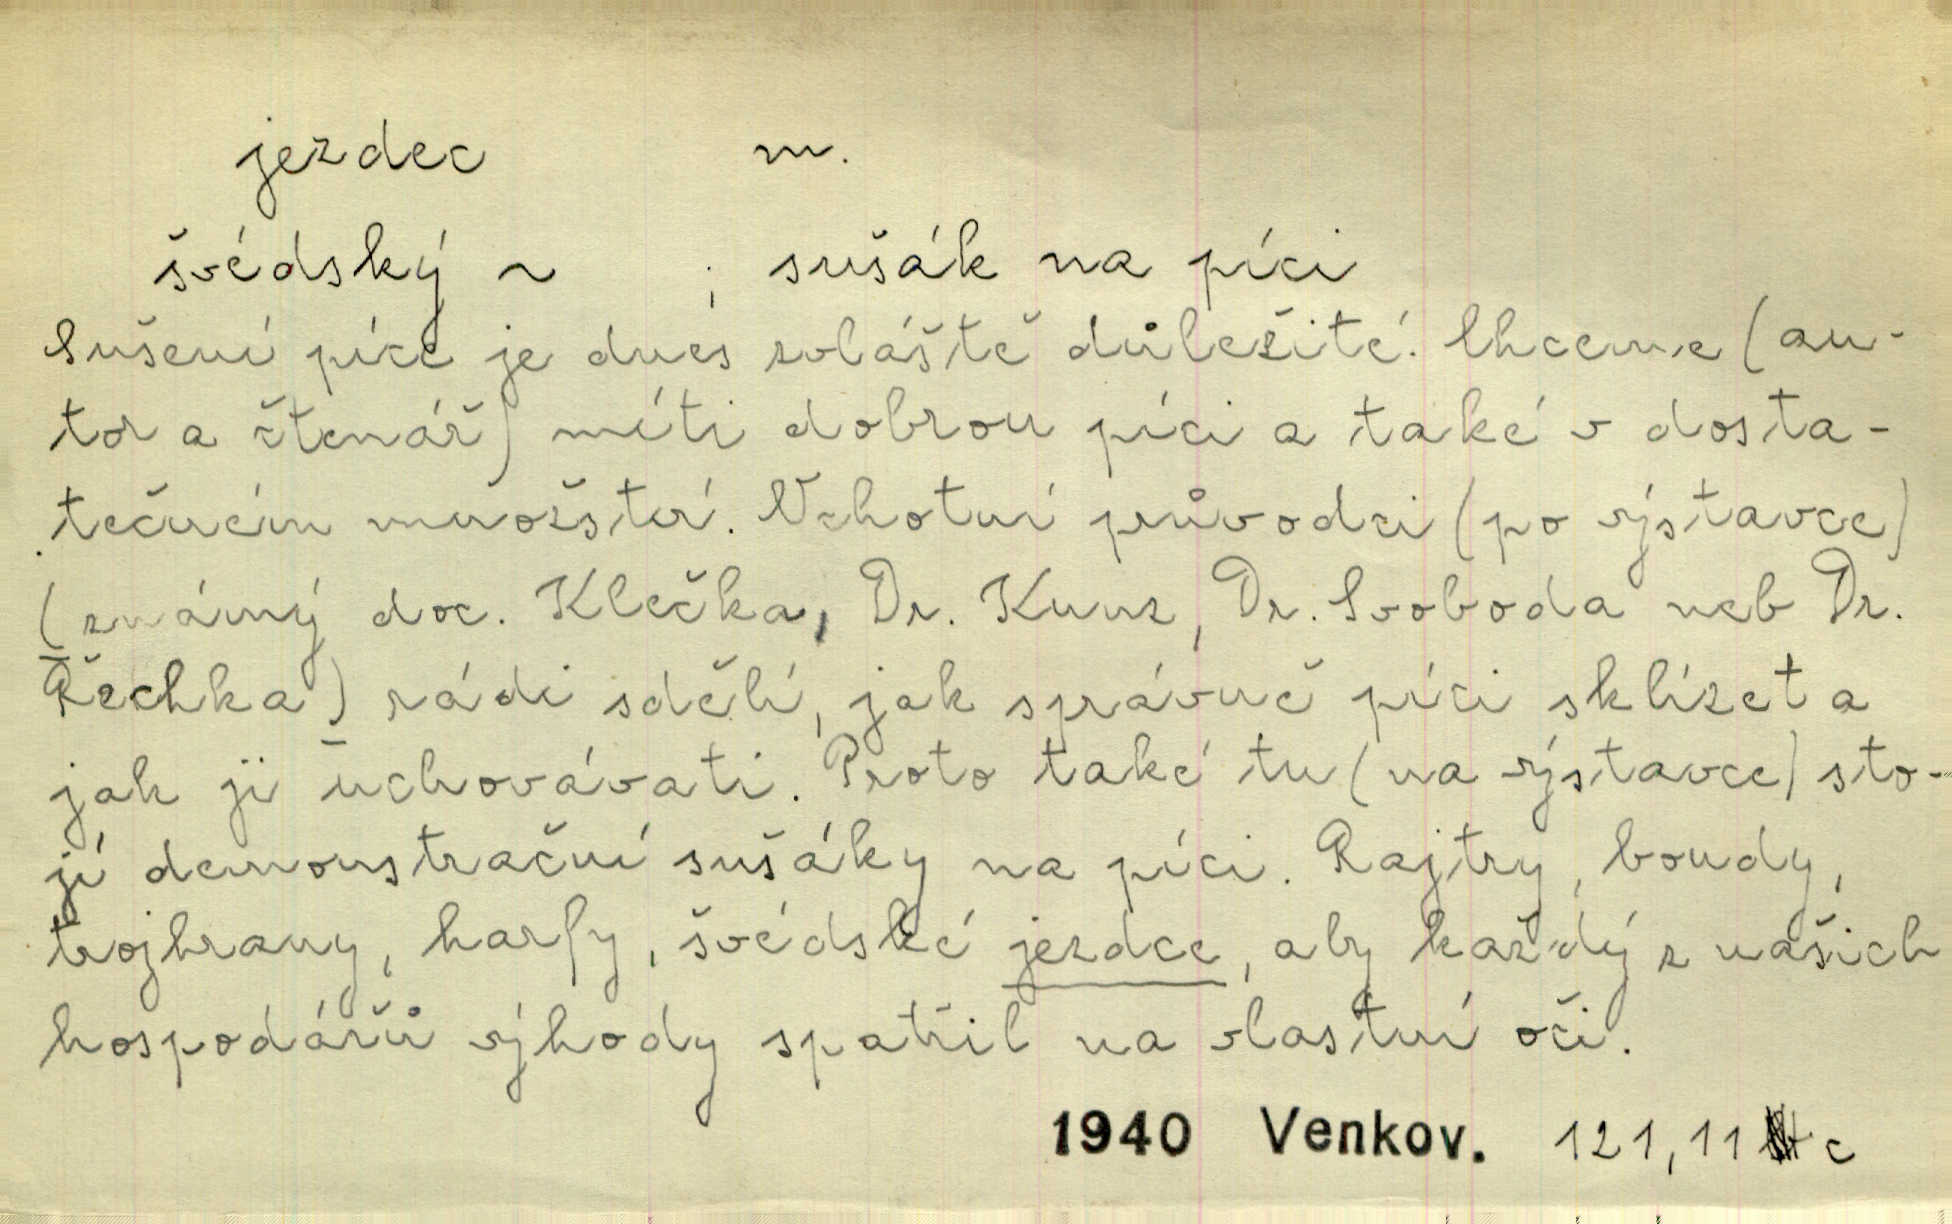 jezdec m.
švédský ~ ; sušák na píci
Sušení píce je dnes zvláště důležité. Chceme (au-
tor a čtenář) míti dobrou píci a také v dosta-
tečném množství. Ochotní průvodci (po výstavce)
(známý doc. Klečka, Dr. Kunz, Dr. Svoboda neb Dr.
Řechka) rádi sdělí, jak správně píci sklízet a
jak ji uchovávati. Proto také tu (na výstavce) sto-
jí demonstrační sušáky na píci. Rajtry, boudy,
trojhrany, harfy, švédské jezdce, aby každý z našich
hospodářů výhody spatřil na vlastní oči.
1940 Venkov. 121, 11 c